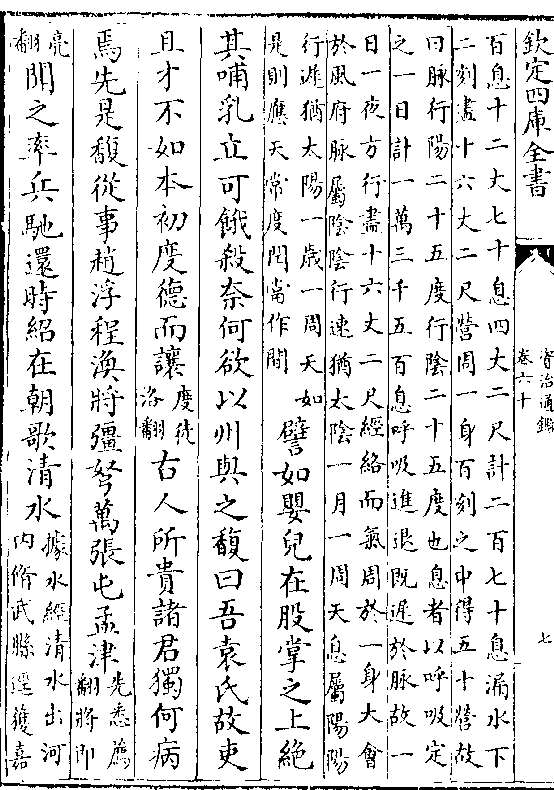 欽定四庫全書
資治通鑑
卷六十
七
百息十二丈七十息四丈二尺計二百七十息漏水下
二刻盡十六丈二尺營周一身百刻之中得五十營故
曰脉行陽二十五度行陰二十五度也息者以呼吸定
之一日計一萬三千五百息呼吸進退既遲於脉故一
日一夜方行盡十六丈二尺經絡而氣周於一身大會
於風府脉屬陰陰行速猶太陰一月一周天息屬陽陽
行遲猶太陽一歲一周天如
是則應天常度罔當作間
譬如嬰兒在股掌之上絶
其哺乳立可餓殺奈何欲以州與之馥曰吾袁氏故吏
且才不如本初度德而讓
度徒
洛翻
古人所貴諸君獨何病
焉先是馥從事趙浮程渙將彊弩萬張屯孟津
先悉薦
翻將即
亮
翻
聞之率兵馳還時紹在朝歌清水
據水經清水出河
内脩武縣逕獲嘉